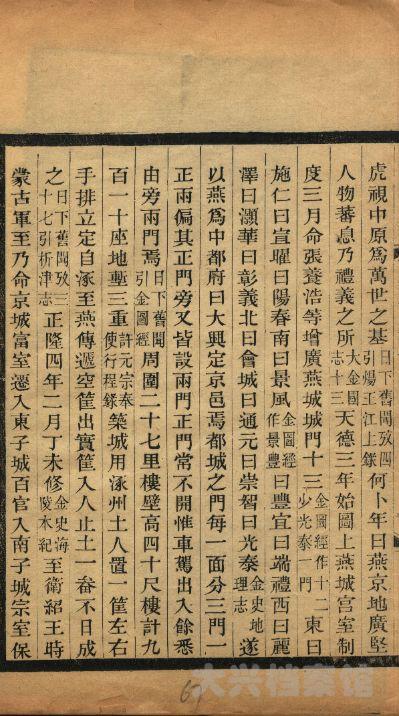 虎視中原爲萬世之基日下舊聞攷四引煬王江上錄何卜年曰燕京地廣堅
人物蕃息乃禮義之所大金國志十三天德三年始圖上燕城宮室制
度三月命張養浩等增廣燕城城門十三金圖經作十二少光泰一門東曰
施仁曰宣曜曰陽春南曰景風金圖經作景豐曰豐宜曰端禮西曰麗
澤曰灝華曰彰義北曰會城曰通元曰崇智曰光泰金史地理志遂
以燕爲中都府曰大興定京邑焉都城之門每一面分三門一
正兩偏其正門旁又皆設兩門正門常不開惟車駕出入餘悉
由旁兩門焉日下舊聞引金圖經周圍二十七里樓壁高四十尺樓計九
百一十座地塹三重許元宗奉使行程錄築城用涿州土人置一筐左右
手排立定自涿至燕傳遞空筐出實筐入人止土一畚不日成
之日下舊聞攷三十七引析津志正隆四年二月丁未修金史海陵本紀至衛紹王時
蒙古軍至乃命京城富室遷入東子城百官入南子城宗室保
大兴档案馆